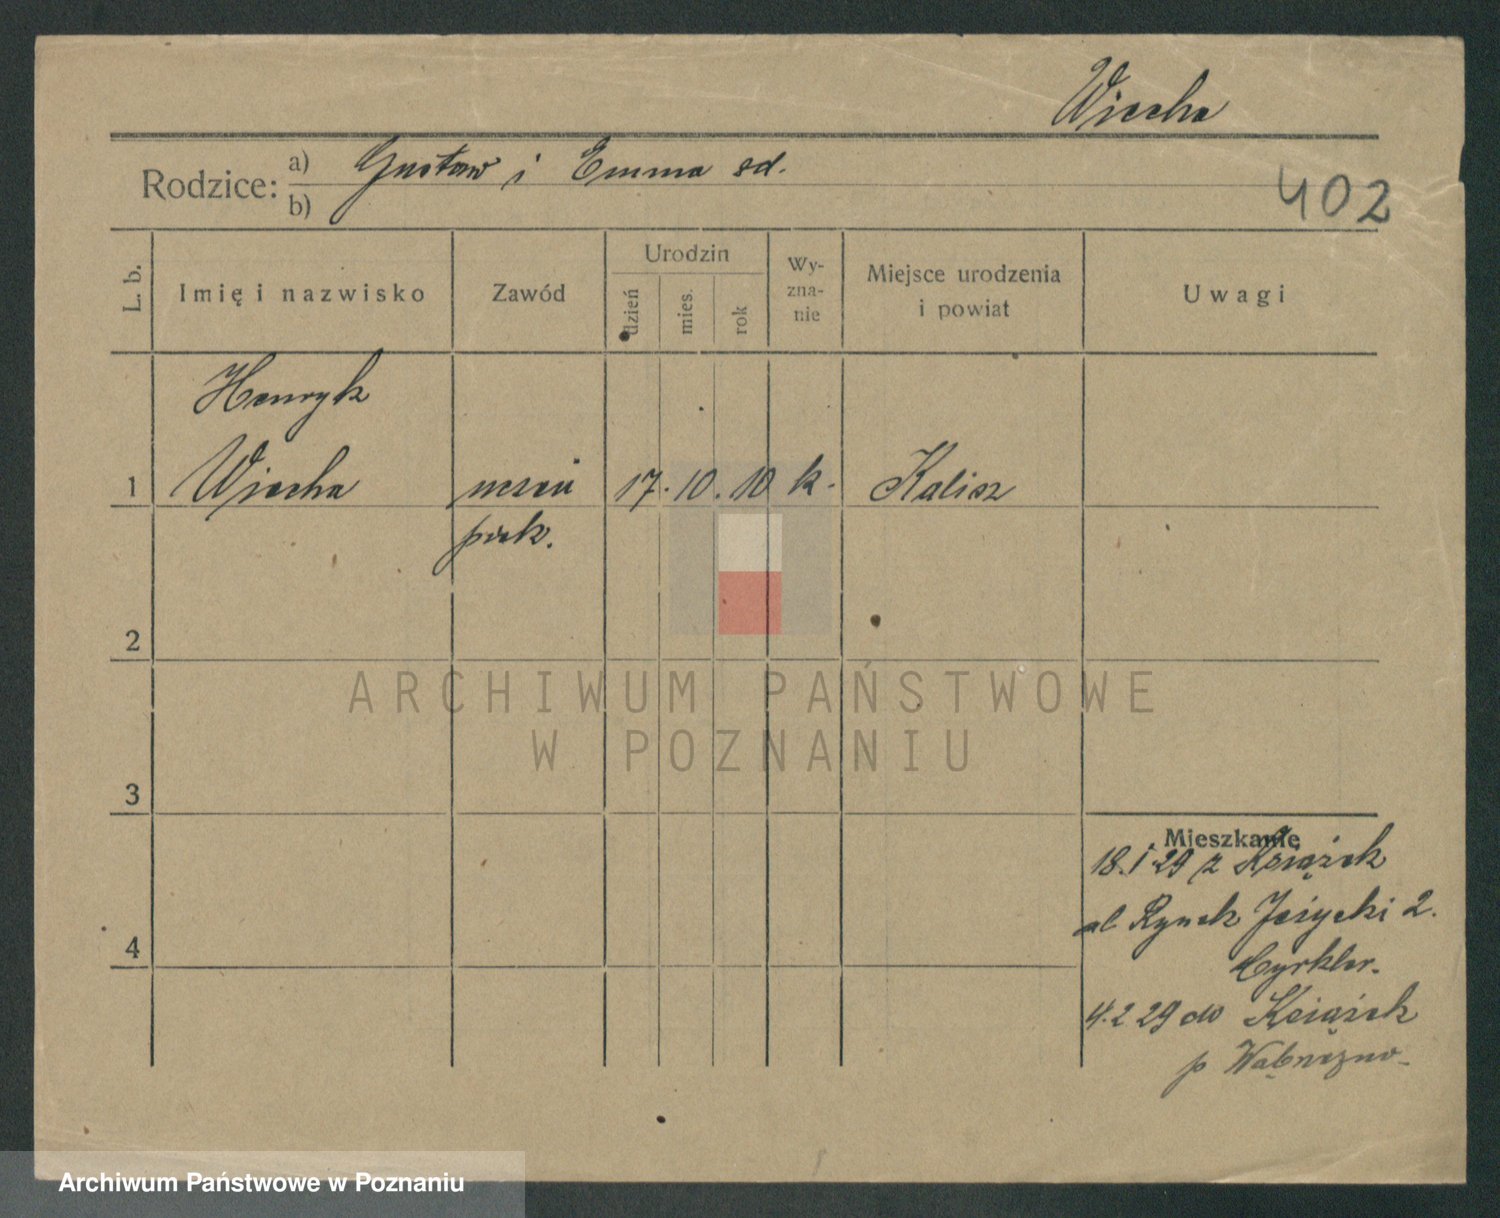 Wiecha
Rodzice: a) Gustaw i Emma sd.
b)
402
L. b.
Imię i nazwisko
Zawód
Urodzin
dzień
mies.
rok
Wy-
zna-
nie
Miejsce urodzenia
i powiat
Uwagi
Henryk
1 Wiecha uczeń 17. 10. 10 k. Kalisz
piek.
2
3
4
Mieszkanie
18.1.29 z Książek
ul. Rynek Jeżycki 2.
Cyrkler.
4.2 29 do Książek
p Wąbrzeźno
ARCHIWUM PAŃSTWOWE
W POZNANIU
Archiwum Państwowe w Poznaniu